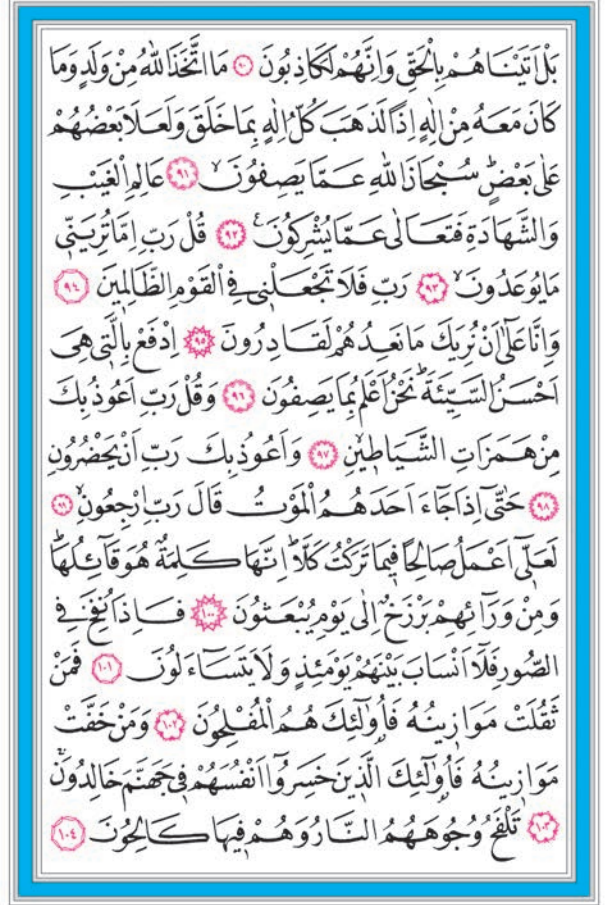 بَلْ اَتَيْنَاهُمْ بِالْحَقِّ وَاِنَّهُمْ لَكَاذِبُونَ ﴿٩٠﴾ مَا اتَّخَذَ اللّٰهُ مِنْ وَلَدٍ وَمَا
كَانَ مَعَهُ مِنْ اِلٰهٍ اِذًا لَذَهَبَ كُلُّ اِلٰهٍ بِمَا خَلَقَ وَلَعَلَا بَعْضُهُمْ
عَلٰى بَعْضٍ سُبْحَانَ اللّٰهِ عَمَّا يَصِفُونَ ﴿٩١﴾ عَالِمِ الْغَيْبِ
وَالشَّهَادَةِ فَتَعَالٰى عَمَّا يُشْرِكُونَ ﴿٩٢﴾ قُلْ رَبِّ اِمَّا تُرِيَنّ۪ي
مَا يُوعَدُونَ ﴿٩٣﴾ رَبِّ فَلَا تَجْعَلْن۪ي فِي الْقَوْمِ الظَّالِم۪ينَ ﴿٩٤﴾
وَاِنَّا عَلٰٓى اَنْ نُرِيَكَ مَا نَعِدُهُمْ لَقَادِرُونَ ﴿٩٥﴾ اِدْفَعْ بِالَّت۪ي هِيَ
اَحْسَنُ السَّيِّئَةَ نَحْنُ اَعْلَمُ بِمَا يَصِفُونَ ﴿٩٦﴾ وَقُلْ رَبِّ اَعُوذُ بِكَ
مِنْ هَمَزَاتِ الشَّيَاط۪ينِ ﴿٩٧﴾ وَاَعُوذُ بِكَ رَبِّ اَنْ يَحْضُرُونِ
﴿٩٨﴾ حَتّٰٓى اِذَا جَٓاءَ اَحَدَهُمُ الْمَوْتُ قَالَ رَبِّ ارْجِعُونِ ﴿٩٩﴾
لَعَلّ۪ٓي اَعْمَلُ صَالِحًا ف۪يمَا تَرَكْتُ كَلَّا اِنَّهَا كَلِمَةٌ هُوَ قَٓائِلُهَا
وَمِنْ وَرَٓائِهِمْ بَرْزَخٌ اِلٰى يَوْمِ يُبْعَثُونَ ﴿١٠٠﴾ فَاِذَا نُفِخَ فِي
الصُّورِ فَلَٓا اَنْسَابَ بَيْنَهُمْ يَوْمَئِذٍ وَلَا يَتَسَٓاءَلُونَ ﴿١٠١﴾ فَمَنْ
ثَقُلَتْ مَوَاز۪ينُهُ فَاُو۬لٰٓئِكَ هُمُ الْمُفْلِحُونَ ﴿١٠٢﴾ وَمَنْ خَفَّتْ
مَوَاز۪ينُهُ فَاُو۬لٰٓئِكَ الَّذ۪ينَ خَسِرُٓوا اَنْفُسَهُمْ ف۪ي جَهَنَّمَ خَالِدُونَ
﴿١٠٣﴾ تَلْفَحُ وُجُوهَهُمُ النَّارُ وَهُمْ ف۪يهَا كَالِحُونَ ﴿١٠٤﴾